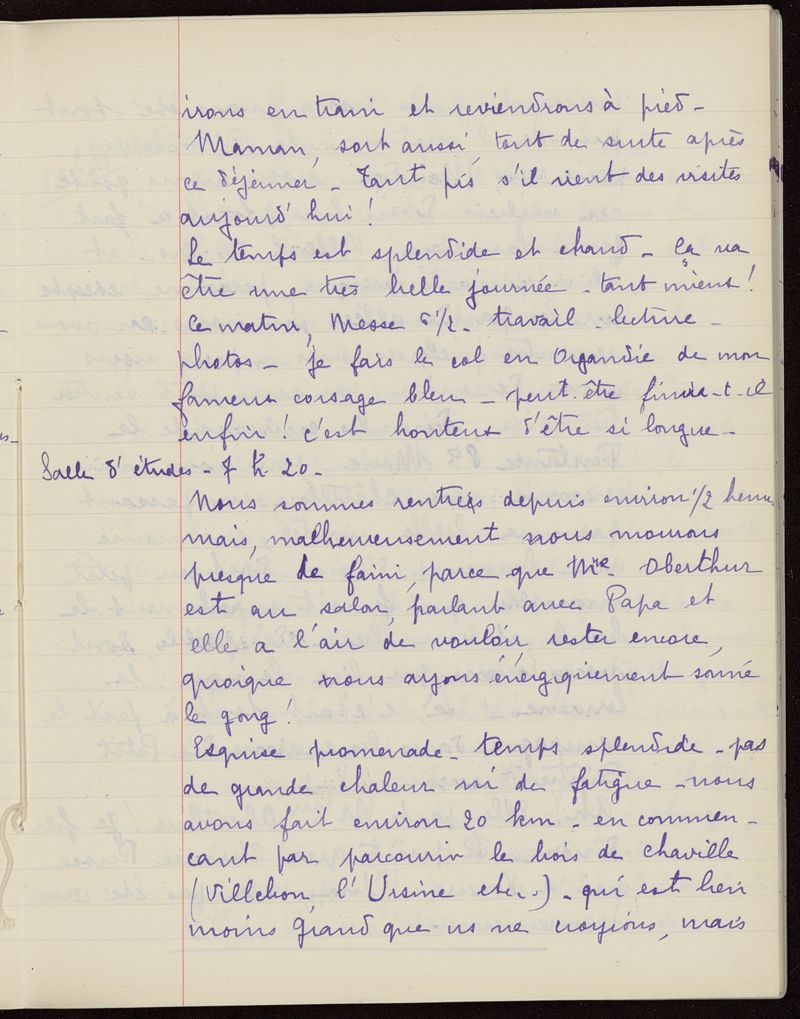 irons en train et reviendrons à pied -
Maman, sort aussi, tout de suite après
ce déjeuner - Tant pis s'il vient des visites
aujourd'hui !
Le temps est splendide et chaud - Ça va
être une très belle journée - tant mieux !
Ce matin, Messe 6 1/2 - travail - lecture -
photos - je fais le col en Organdie de mon
fameux corsage bleu - peut-être finira-t-il
enfin ! c'est honteux d'être si longue -
Salle d'études - 7 h 20 -
Nous sommes rentrées depuis environ 1/2 heure
mais, malheureusement nous mourons
presque de faim, parce que Mr. Oberthur
est au salon, parlant avec Papa et
elle a l'air de vouloir rester encore,
quoique nous ayons énergiquement sonné
le gong !
Exquise promenade - temps splendide - pas
de grande chaleur ni de fatigue - nous
avons fait environ 20 km - en commen -
cant par parcourir le bois de chaville
(Villebon, l'Ursine etc..) - qui est bien
moins grand que ns ne croyions, mais